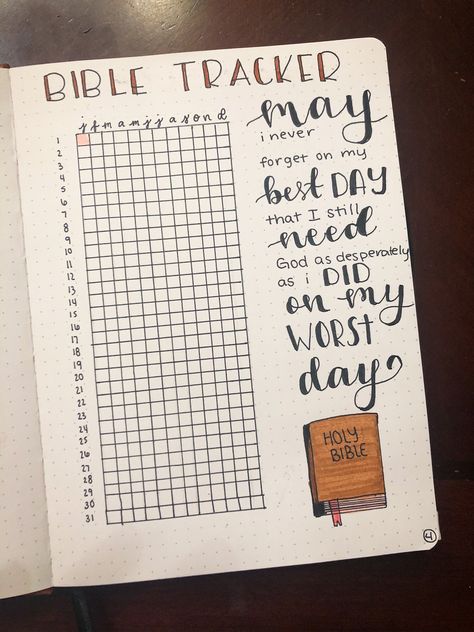 BIBLE TRACKER
j f m a m j j a s o n d
1
2
3
4
5
6
7
8
9
10
11
12
13
14
15
16
17
18
19
20
21
22
23
24
25
26
27
28
29
30
31
may
i never
forget on my
best DAY
that I still
need
God as desperately
as i DID
on my
WORST
day
HOLY
BIBLE
4